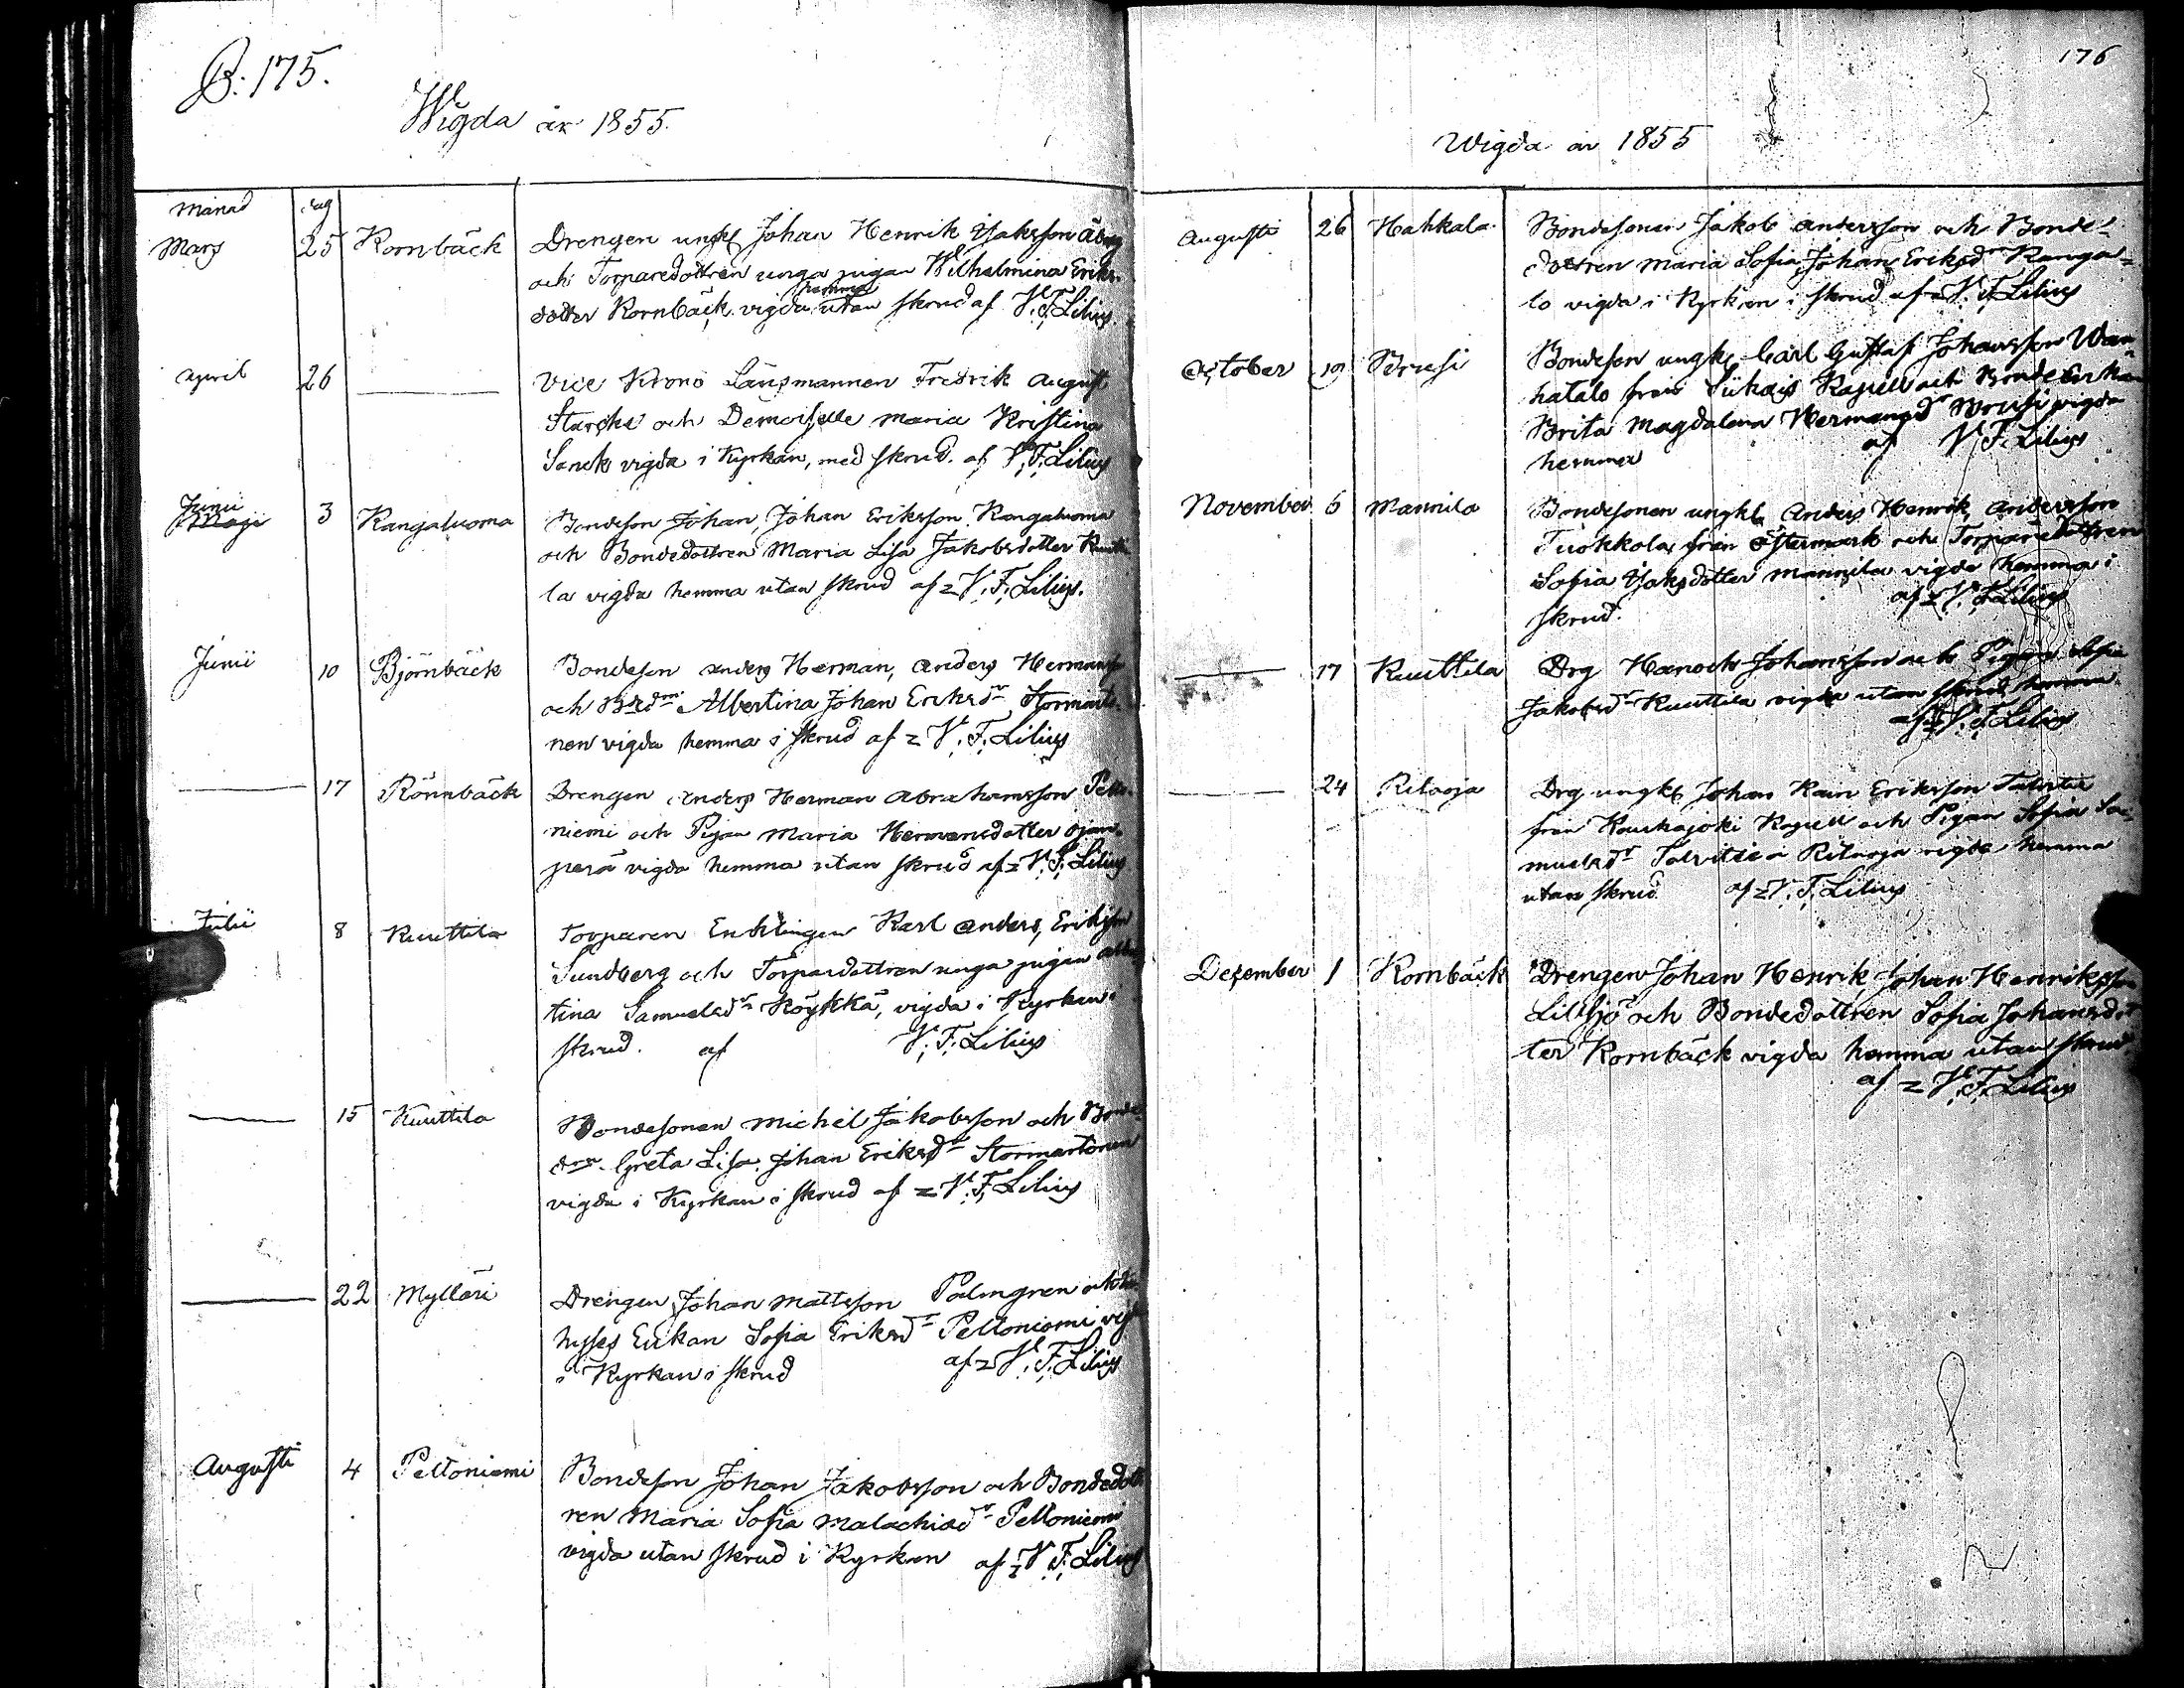 P: 175.
Wigda år 1855.
Månad dag
Mars 25 Kornbäck Drengen ungk Johan Henrik Isaksson
och Torparedottren unga pigan Wilhelmina Eriks-
dotter Kornbäck vigda hemma utan skrud af V. F. Lilius.
April 26 — Vice Krono Länsmannen Fredrik August
Starcke och Demoiselle Maria Kristina
vigda i Kyrkan, med skrud. af V. F. Lilius
Junii Maji 3 Kangaluoma Bondeson Johan, Johan Eriksson Kangaluoma
och Bondedottren Maria Lisa Jakobsdotter Kuutti
la vigda hemma utan skrud af V. F. Lilius.
Junii 10 Björnbäck Bondeson Anders Herman, Anders Hermansson
och Albertina Johan Eriksdr Stormarto-
nen vigda hemma i skrud af V. F. Lilius
— 17 Rönnbäck Drengen Anders Herman Abrahamsson Pelto-
niemi och Pigan Maria Hermansdotter Ojan-
perä vigda hemma utan skrud af V. F. Lilius
Julii 8 Kuuttila Torparen Encklingen Karl Anders, Eriksson
Sundberg och Torpardottren unga pigan Alber
tina Samuelsdr Köykkä, vigda i Kyrkan i
skrud. af V. F. Lilius
— 15 Kuuttila Bondesonen Michel Jakobsson och Bonde
drn. Greta Lisa Johan Eriksdr Stormartonen
vigda i Kyrkan i skrud af V. F. Lilius
— 22 Mylläri Drengen Johan Mattsson Palmgren och
Enkan Sofia Eriksdr Peltoniemi vigda
i Kyrkan i skrud af V. F. Lilius
Augusti 4 Peltoniemi Bondeson Johan Jakobsson och Bondedott
ren Maria Sofia Malachiasdr Peltoniemi
vigda utan skrud i Kyrkan af V. F. Lilius
176
Wigda år 1855
Augusti 26 Hahkala Bondesonen Jakob Andersson och Bonde-
dottren Maria Sofia Johan Eriksdr Kanga-
lo vigda i Kyrkan i skrud af V. F. Lilius
October 19 Bondeson ungk Carl Gustaf Johansson Wan-
hatalo från Siikais Kapell och Bonde Enkan
Brita Magdalena Hermansdr vigda
hemma af V. F. Lilius
November 6 Mannila Bondesonen ungk Anders Henrik Andersson
Tuokkola från Östermark och Torparedottren
Sofia Isaksdotter Mannila vigda hemma i
skrud. af V. F. Lilius
— 17 Kuuttila Drg Hanock Johansson och Pigan
Jakobsdr Kuuttila vigda utan skrud hemma
af V. F. Lilius
— 24 Ritaoja Drg ungk Johan Kain Eriksson
från Kauhajoki Kapell och Pigan Sofia Sa-
muelsdr å Ritaoja vigda hemma
utan skrud af V. F. Lilius
December 1 Kornbäck Drengen Johan Henrik Johan Henriksson
Lillsjö och Bondedottren Sofia Johansdot
ter Kornbäck vigda hemma utan skrud
af V. F. Lilius